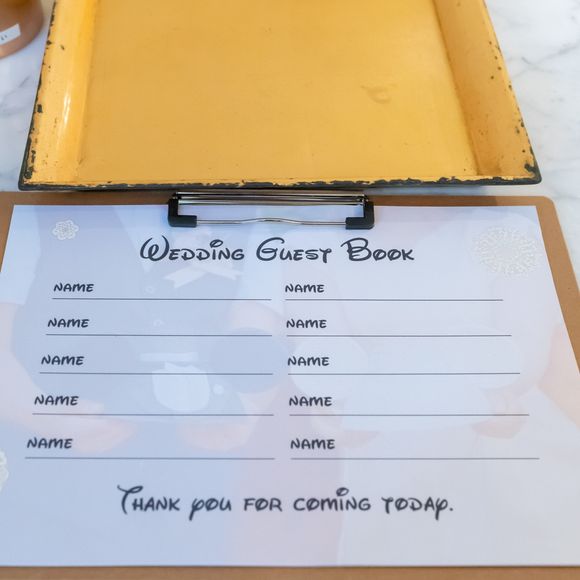 Wedding Guest Book
NAME NAME
NAME NAME
NAME NAME
NAME NAME
NAME NAME
Thank you for coming today.